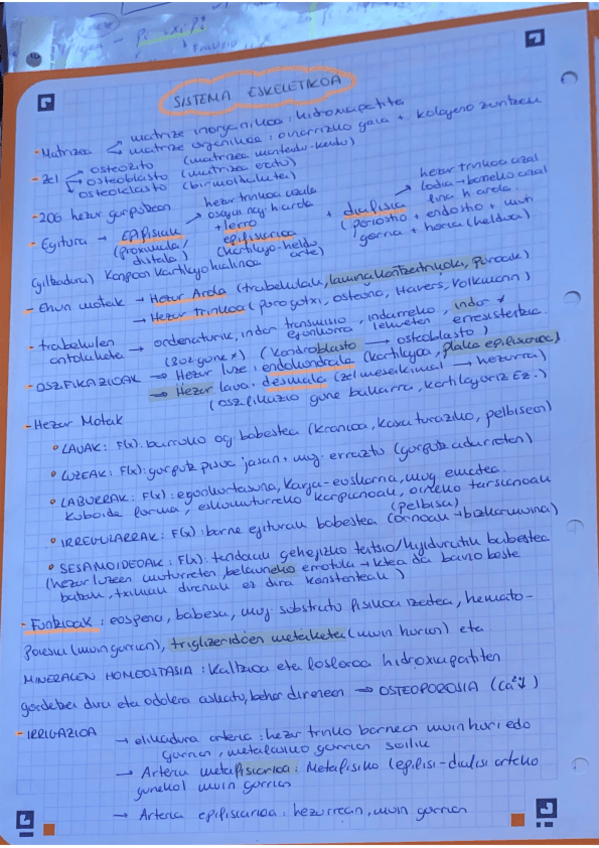 Prinzipi
SISTEMA ESKELETIKOA
- Matrizea matrize inorganikoa: hidroxiapatita
matrize organikoa: oinarrizko gaia + kolageno zuntzak
- Zel osteozito (matrizea mantendu-kendu)
osteoblasto (matrizea eratu)
osteoklasto (birmoldaketa)
- 206 hezur gorputzean
- Egitura → EPIFISIAK (proximala/distala) → hezur trinkoa azala osagai nag. harola
+ lerro epifisiarioa (kartilago-heldu arte)
+ diafisia → hezur trinkoa azal lodia → barneko azal fina harola.
(periostio + endostio + muin gorria + horia (heldua)
(giltzadura) kartilago hialinoa
- Ehun motak → Hezur Arola (trabekulak, lamina kontzentrikoak, poroak)
→ Hezur trinkoa (poro gutxi, osteona, Havers, Volkmann)
- trabekulen antolaketa → ordenaturik, indar transmisio, indarreko, indar
egonkorra lekueten erresistentzia.
- OSZIFIKAZIOAK (kondroblasto → osteoblasto)
→ Hezur luze: endokondrala (kartilagoa, plaka epifisarioa)
→ Hezur laua: desmala (zel mesekimal → hezurra)
(oszifikazio gune bakarra, kartilagorik Ez.)
- Hezur Motak
• LAUAK: F(x): barruko og. babestea (kranioa, kaxa toraziko, pelbisean)
• LUZEAK: F(x): gorputz pisua jasan, mug. erraztu (gorputz adarretan)
• LABURRAK: F(x): egonkortasuna, karga-euskarria, mug. ematea.
kuboide forma, eskumuturreko karpianoak, oineko tarsianoak
• IRREGULARRAK: F(x): barne egiturak babestea (pelbisa)
• SESAMOIDEOAK: F(x): tendoiak gehiegizko tentsio/higiduratik babestea
(hezur luzeen muturretan, belauneko errotula → ez dira konstanteak)
- Funtzioak: eospena, babesa, mug. substratu fisikoa izatea, hemato-
poiesia (muin gorrian), triglizeridoen metaketa (muin horian) eta
MINERALEN HOMEOSTASIA: Kaltzioa eta fosforoa hidroxiapatiten
gordetzen dira eta odolera askatu, behar direnean → OSTEOPOROSIA (Ca²⁺↓)
- IRRIGAZIOA → elikadura arteria: hezur trinko barnean muin hori edo
gorrian, metafisiko gorrian soilik
→ Arteria metafisiarioa: Metafisiko (epifisi-diafisi arteko
gunekoa) muin gorrian
→ Arteria epifisiarioa: hezurrean, muin gorrian